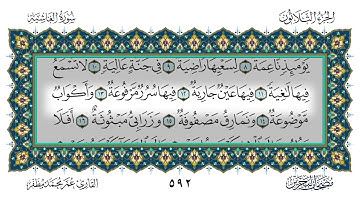 الجزء الثلاثون
سورة الغاشية
يَوْمَئِذٍ نَّاعِمَةٌ ٨ لِّسَعْيِهَا رَاضِيَةٌ ٩ فِي جَنَّةٍ عَالِيَةٍ ١٠ لَّا تَسْمَعُ
فِيهَا لَٰغِيَةً ١١ فِيهَا عَيْنٌ جَارِيَةٌ ١٢ فِيهَا سُرُرٌ مَّرْفُوعَةٌ ١٣ وَأَكْوَابٌ
مَّوْضُوعَةٌ ١٤ وَنَمَارِقُ مَصْفُوفَةٌ ١٥ وَزَرَابِيُّ مَبْثُوثَةٌ ١٦ أَفَلَا
القارئ: عمر محمد مظفر
٥٩٢